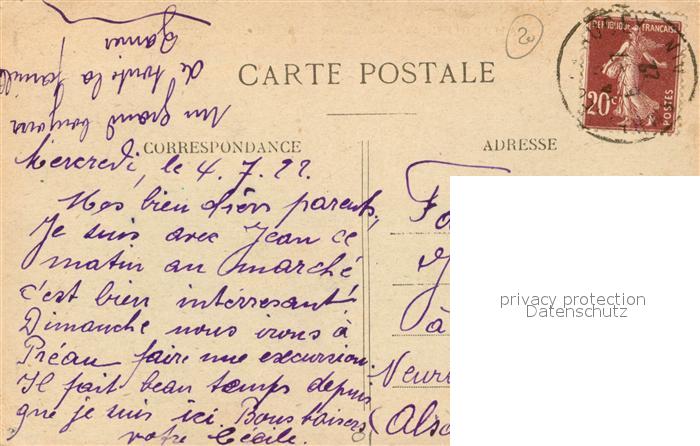 20
RÉPUBLIQUE FRANÇAISE
20c
POSTES
CARTE POSTALE
Un grand bonjour
de toute la famille
CORRESPONDANCE
ADRESSE
Mercredi, le 4.7.22.
Mes bien chers parents,
Je suis avec Jean ce
matin au marché
c'est bien intérresant!
Dimanche nous irons à
Préau faire une excursion.
Il fait beau temps depuis
que je suis ici. Bons baisers
votre Cécile.
à
privacy protection
Datenschutz